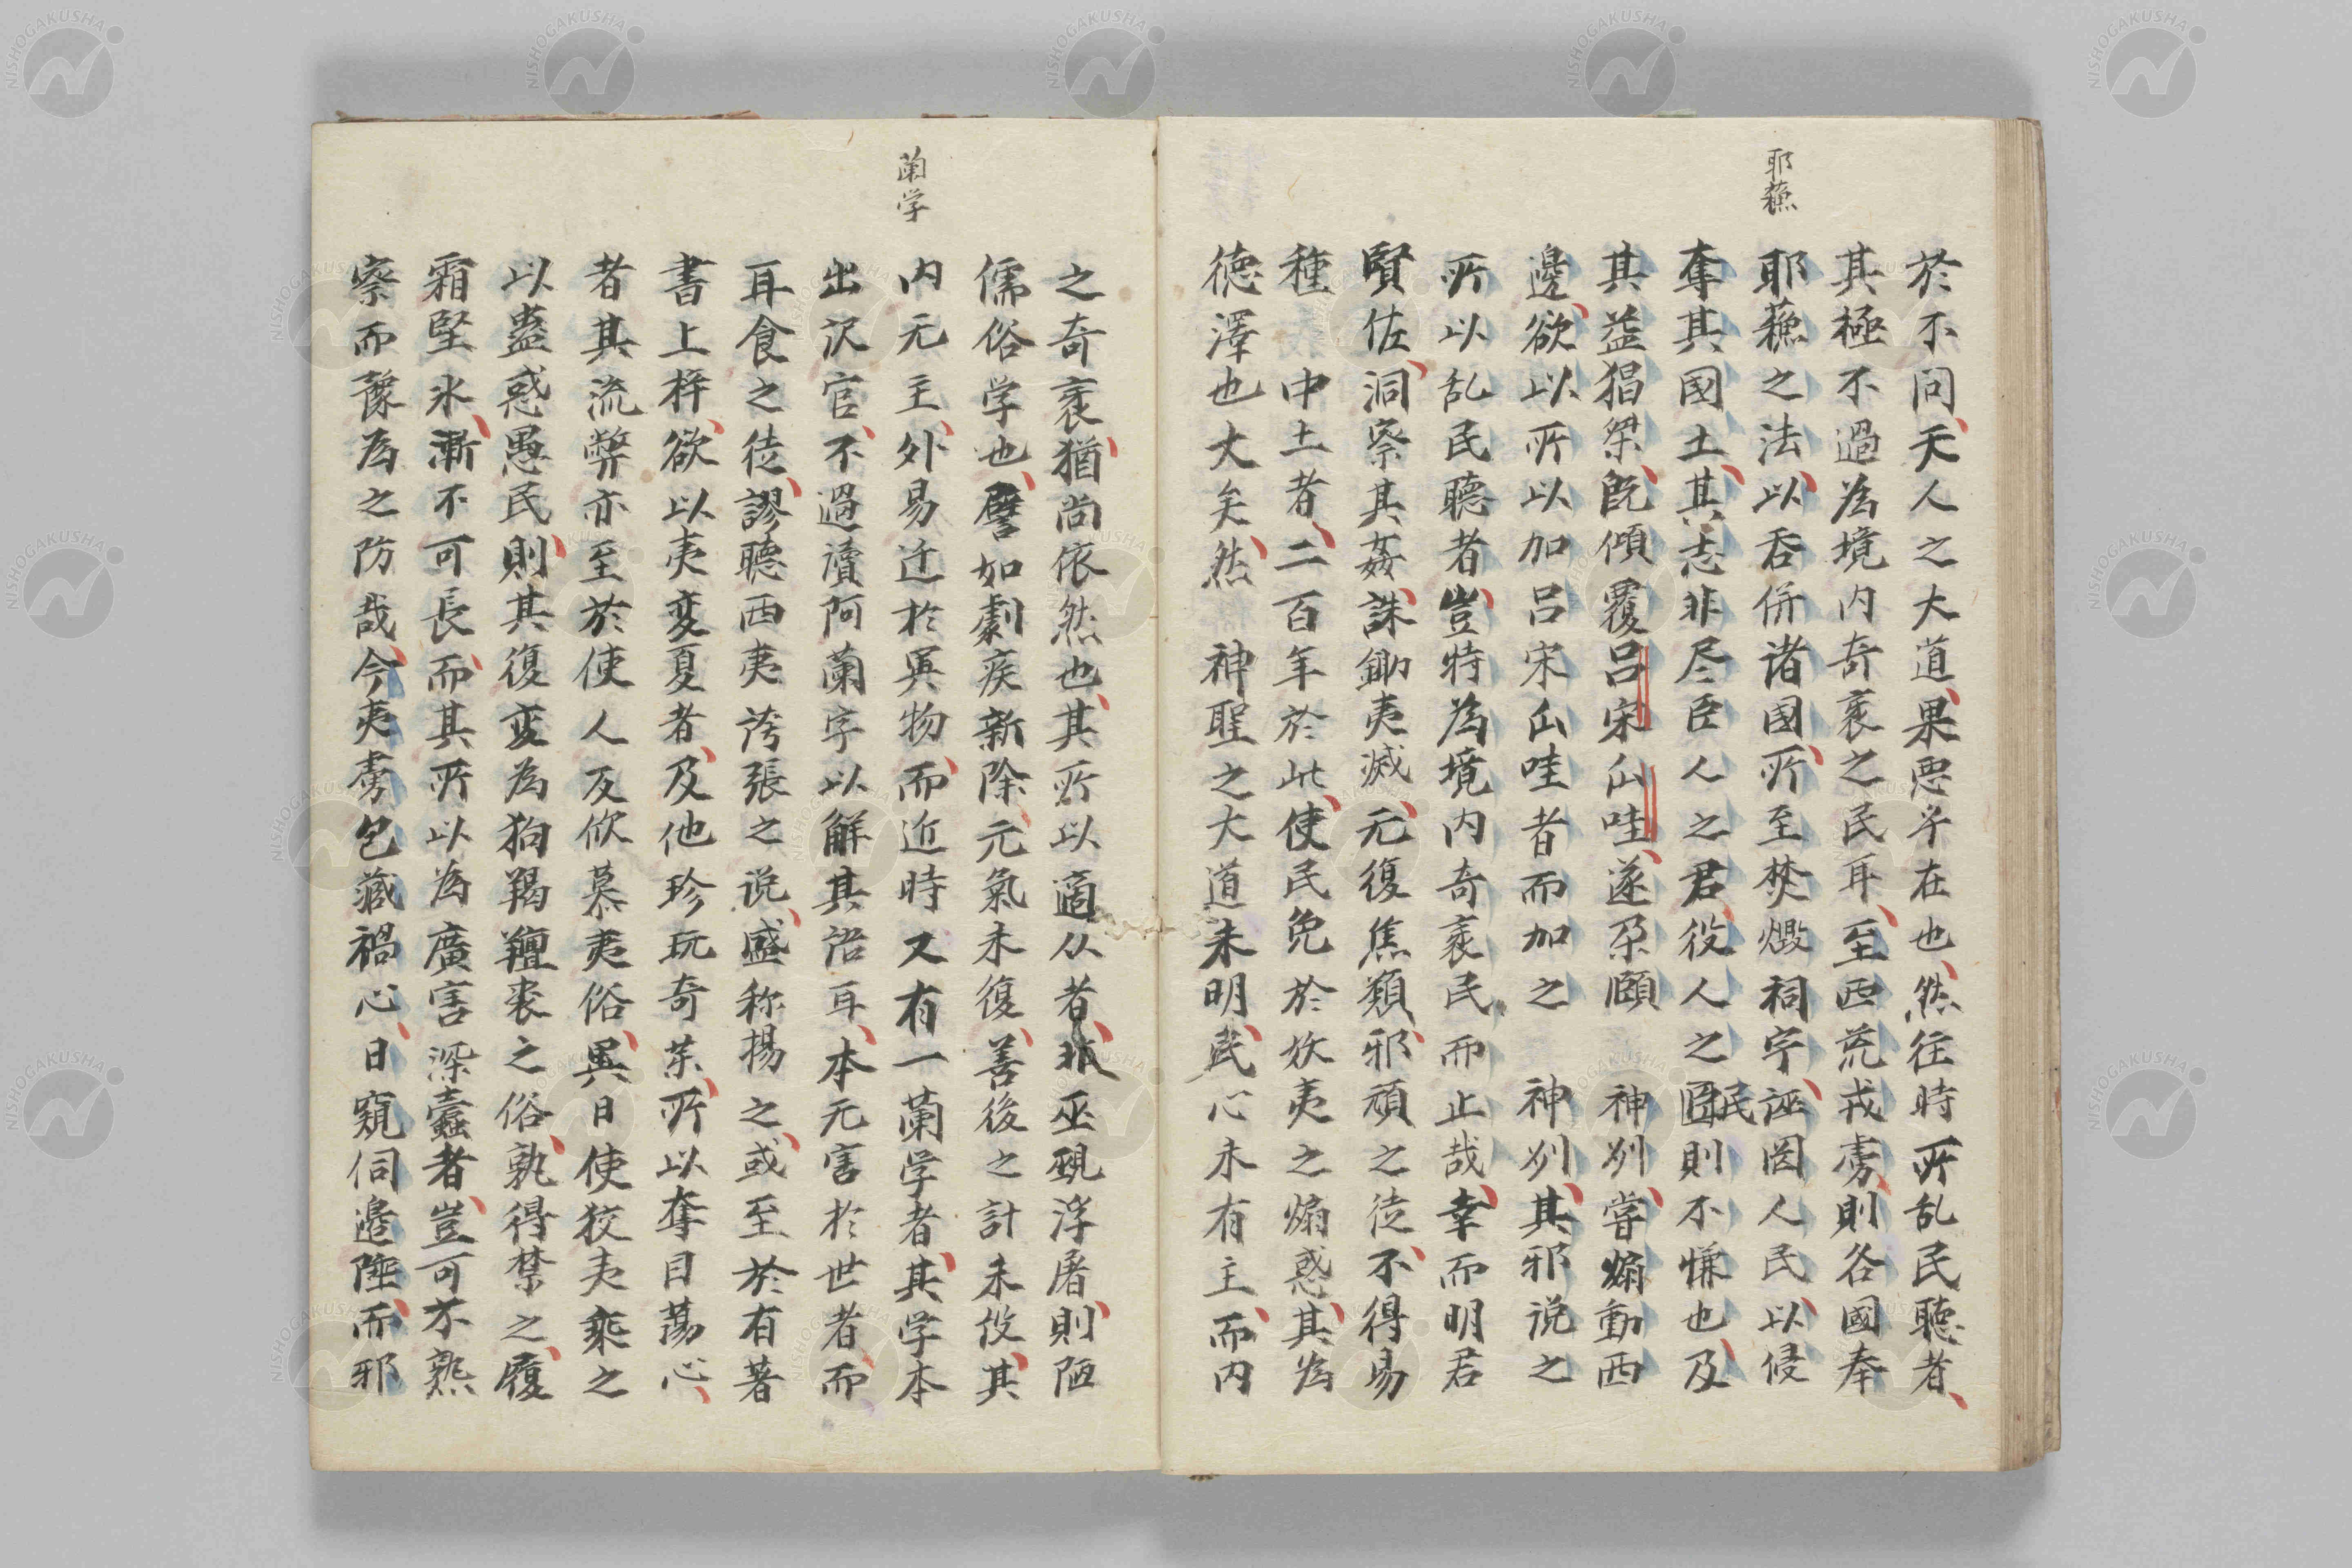 耶蘓
於不問天人之大道果悪乎在也然徃時所乱民聴者
其極不過為境内奇衺之民耳至西荒戎虜則各國奉
耶蘓之法以呑併诸國所至焚燬祠宇誣罔人民以侵
奪其國土其志非尽臣人之君役人之民則不慊也及
其益猖桀既傾覆呂宋㕥哇遂朶頤　神州嘗煽動西
邊欲以所以加呂宋㕥哇者而加之　神州其邪说之
所以乱民聴者豈特為境内奇衺民而止哉幸而明君
賢佐洞察其姦誅鋤夷滅元復焦類邪頑之徒不得易
種　中土者二百年於此使民免於妖夷之煽惑其為
徳澤也大矣然　神聖之大道未明民心未有主而内
蘭学
之奇衺猶尚依然也其所以適从者非巫覡浮屠則陋
儒俗学也譬如劇疾新除元氣未復善後之計未伇其
内元主外易迁於異物而近時又有一蘭学者其学本
出沢官不過讀阿蘭字以解其语耳本元害於世者而
耳食之徒謬聴西夷誇張之说盛称揚之或至於有著
書上梓欲以夷変夏者及他珍玩奇茱所以奪目蕩心
者其流弊亦至於使人反欣慕夷俗異日使狡夷乘之
以蠱惑愚民則其復変為狗羯羶裘之俗孰得禁之履
霜堅氷漸不可長而其所以為廣害深蠹者豈可不熟
察而豫為之防哉今夷虜包藏禍心日窺伺邊陲而邪